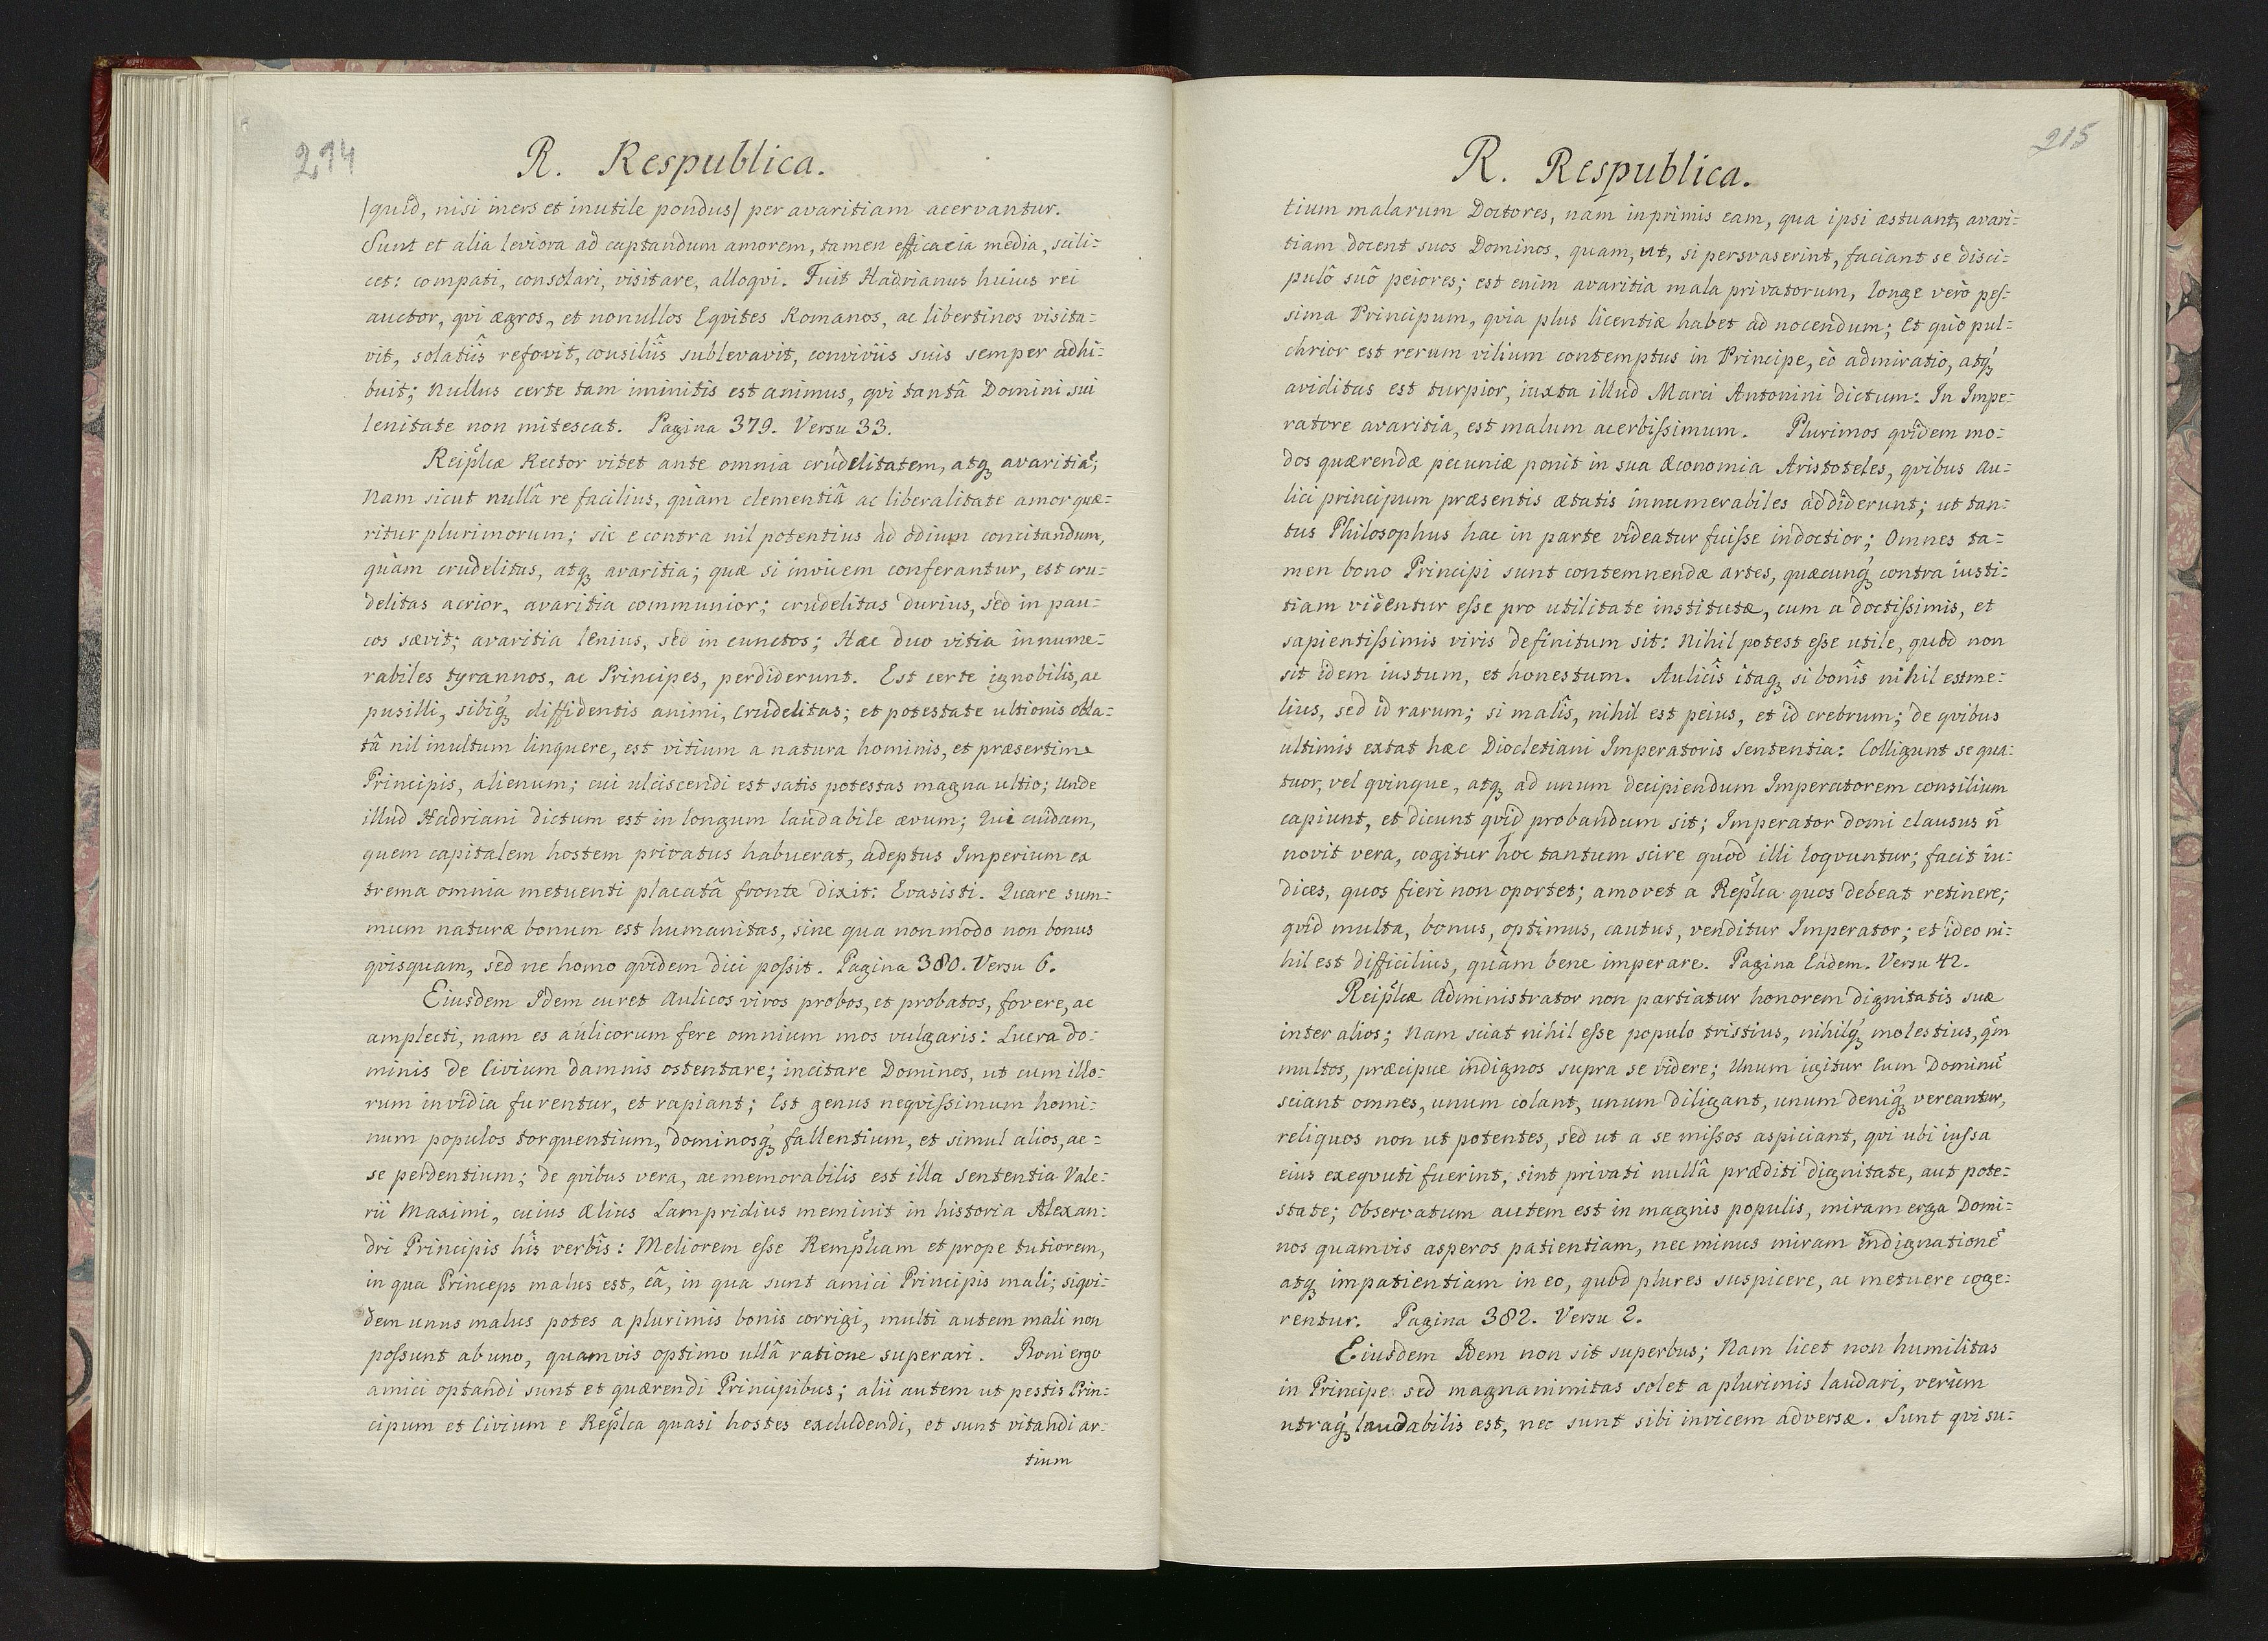 214
R. Respublica.
/quid, nisi iners et inutile pondus/ per avaritiam acervantur.
Sunt et alia leviora ad captandum amorem, tamen efficacia media, scili:
cet: compati, consolari, visitare, alloqvi. Fuit Hadrianus huius rei
auctor, qvi ægros, et nonullos Eqvites Romanos, ac libertinos visita:
vit, solatiîs refovit, consiliîs sublevavit, conviviis suis semper adhi:
buit; Nullus certe tam iminitis est animus, qvi tantâ Domini sui
lenitate non mitescat. Pagina 379. Versu 33.
Reip̃licæ Rector vitet ante omnia crudelitatem, atq₃ avaritiã;
Nam sicut nullâ re facilius, quàm clementiâ ac liberalitate amor quæ:
ritur plurimorum; sic e contra nil potentius ad odium concitandum,
quàm crudelitas, atq₃ avaritia; quæ si invicem conferantur, est cru:
delitas acrior, avaritia communior; crudelitas durius, sed in pau:
cos sævit; avaritia lenius, sed in cunctos; Hæc duo vitia innume:
rabiles tyrannos, ac Principes, perdiderunt. Est certe ignobilis, ac
pusilli, sibiq₃ diffidentis animi, Crudelitas; et potestate ultionis obla:
tâ nil inultum linquere, est vitium a natura hominis, et præsertim
Principis, alienum; cui ulciscendi est satis potestas magna ultio; Unde
illud Hadriani dictum est in longum laudabile ævum; Qui cuidam,
quem capitalem hostem privatus habuerat, adeptus Imperium ex
trema omnia metuenti placatâ fronte dixit: Evasisti. Quare sum:
mum naturæ bonum est humanitas, sine qua non modo non bonus
qvisquam, sed ne homo qvidem dici possit. Pagina 380. Versu 6.
Eiusdem Idem curet Aulicos viros probos, et probatos, fovere, ac
amplecti, nam es aulicorum fere omnium mos vulgaris: Lucra do:
minis de Civium damnis ostentare; incitare Dominos, ut cum illo:
rum invidia furentur, et rapiant; Est genus neqvissimum homi:
num populos torquentium, dominosq₃ fallentium, et simul alios, ac:
se perdentium; de qvibus vera, ac memorabilis est illa sententia Vale:
rii Maximi, cuius Ælius Lampridius meminit in historia Alexan:
dri Principis hîs verbîs: Meliorem esse Remp̃licam et prope tutiorem,
in qua Princeps malus est, eâ, in qua sunt amici Principis mali; siqvi:
dem unus malus potes a plurimis bonis corrigi, multi autem mali non
possunt ab uno, quamvis optimo ullâ ratione superari. Boni ergo
amici optandi sunt et quærendi Principibus; alii autem ut pestis Prin:
cipum et Civium e Rep̃lca quasi hostes excludendi, et sunt vitandi ar:
tium
215
R. Respublica.
tium malarum Doctores, nam inprimis eam, qua ipsi æstuant, avari:
tiam docent suos Dominos, quam, ut, si persvaserint, faciant se disci:
pulô suô peiores; est enim avaritia mala privatorum, longe verò pes:
sima Principum, qvia plus licentiæ habet ad nocendum; Et quò pul:
chrior est rerum vilium contemptus in Principe, eò admiratio, atq₃
aviditas est turpior, iuxta illud Marci Antonini dictum: In Impe:
ratore avaritia, est malum acerbissimum. Plurimos qvidem mo:
dos quærendæ pecuniæ ponit in sua Œconomia Aristoteles, qvibus au:
lici principum præsentis ætatis innumerabiles addiderunt; ut tan:
tus Philosophus hac in parte videatur fuisse indoctior; Omnes ta:
men bono Principi sunt contemnendæ artes, quæcunq₃ contra iusti:
tiam videntur esse pro utilitate institutæ, cum a doctissimis, et
sapientissimis viris definitum sit: Nihil potest esse utile, quod non
sit idem iustum, et honestum. Aulicîs itaq₃ si bonîs nihil est me:
lius, sed id rarum; si malîs, nihil est peius, et id crebrum; de qvibus
ultimis extat hæc Diocletiani Imperatoris Sententia: Colligunt se qua:
tuor, vel qvinque, atq₃ ad unum decipiendum Imperatorem consilium
capiunt, et dicunt qvid probandum sit; Imperator domi clausus ñ
novit vera, cogitur hoc tantum scire quod illi loqvuntur; facit iu:
dices, quos fieri non oportet; amovet a Rep̃lca quos debeat retinere;
qvid multa, bonus, optimus, cautus, venditur Imperator; et ideo ni:
hil est difficilius, quàm bene imperare. Pagina Eâdem. Versu 42.
Reip̃licæ Administrator non partiatur honorem dignitatis suæ
inter alios; Nam sciat nihil esse populo tristius, nihilq₃ molestius, q̃m
multos, præcipue indignos supra se videre; Unum igitur Eum Dominũ
sciant omnes, unum colant, unum diligant, unum deniq₃ vereantur,
reliquos non ut potentes, sed ut a se missos aspiciant, qvi ubi iussa
eius exeqvuti fuerint, sint privati nullâ præditi dignitate, aut pote:
state; Observatum autem est in magnis populis, miram erga Domi:
nos quamvis asperos patientiam, nec minus miram indignationẽ
atq₃ impatientiam in eo, quod plures suspicere, ac metuere coge:
rentur. Pagina 382. Versu 2.
Eiusdem Idem non sit superbus; Nam licet non humilitas
in Principe sed magnanimitas solet a plurimis laudari, verùm
utraq₃ laudabilis est, nec sunt sibi invicem adversæ. Sunt qvi su: